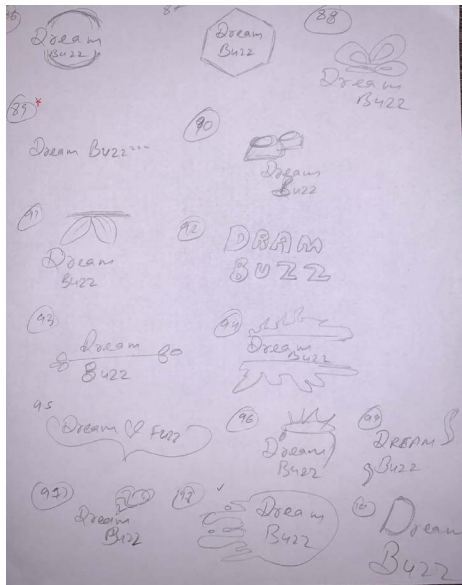 Dream
Buzz
Dream
Buzz
88
Dream
Buzz
89*
Dream Buzz...
90
Dream
Buzz
91
Dream
Buzz
92
DRAM
BUZZ
93
Dream
Buzz
94
Dream
Buzz
95
Dream Fuzz
96
Dream
Buzz
99
DREAM
Buzz
97
Dream
Buzz
98
Dream
Buzz
Dream
Buzz